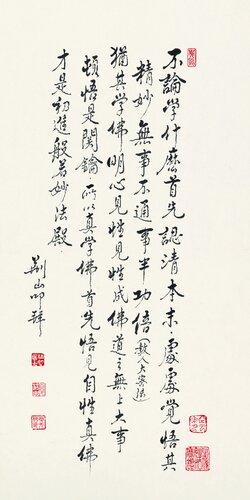 不論學什麼首先認清本末處處覺悟其
精妙無事不通事半功倍(教人大密法)
猶其学佛明心見性見性成佛道之無上大事
頓悟是関鑰所以真学佛首先悟見自性真佛
才是初造般若妙法殿